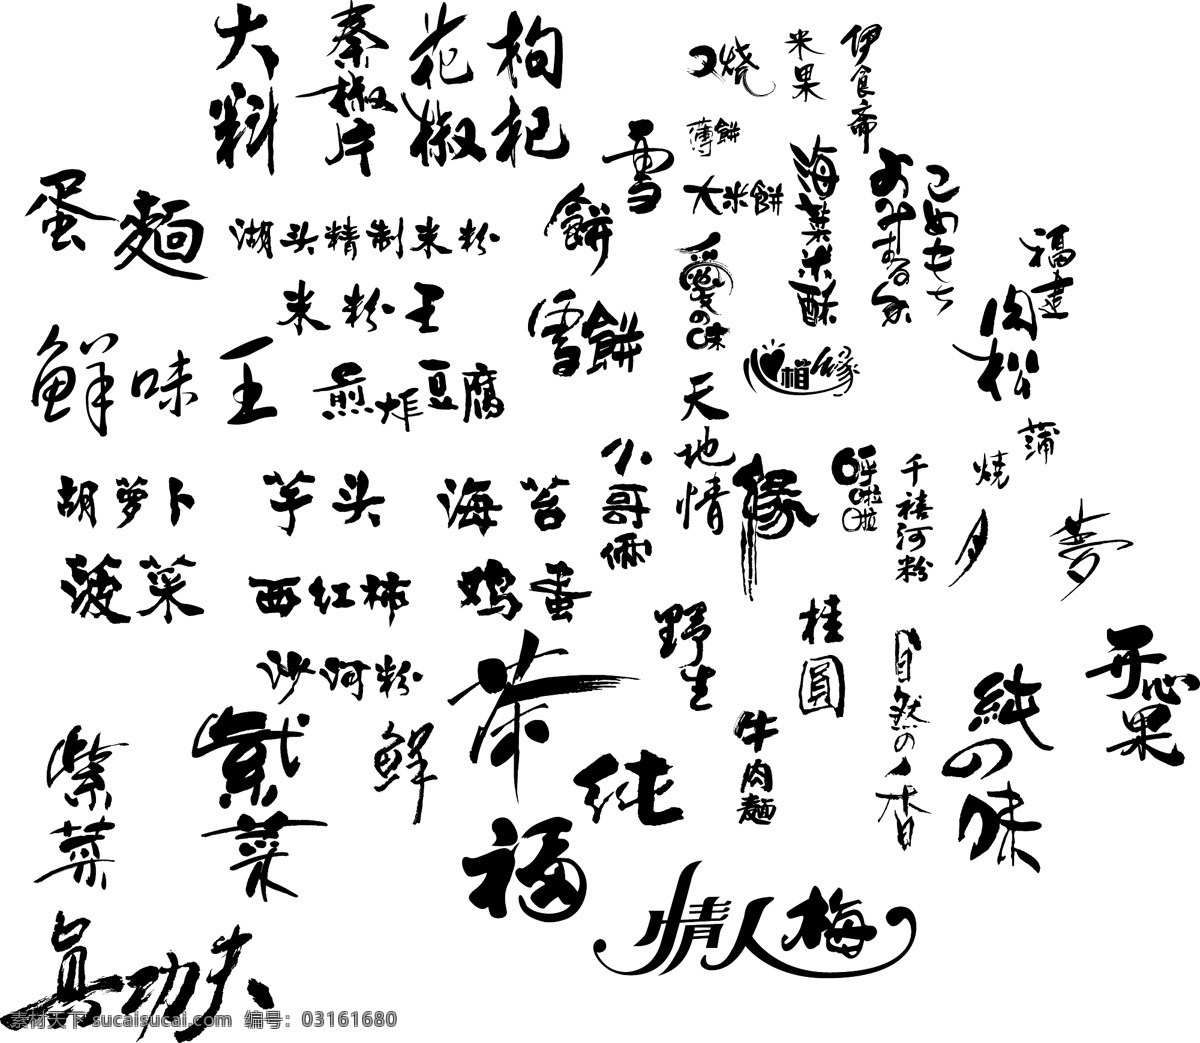 大料
秦椒片
花椒
枸杞
口烧
米果
伊食斋
薄餅
雪
餅
大米餅
海菜米酥
蛋麵
湖头精制米粉
愛の味
福建
肉松
米粉王
雪餅
鮮味王
煎炸豆腐
相缘
天地情
小哥俩
緣
呼啦啦
千禧河粉
蒲
燒
夢
胡萝卜
芋头
海苔
菠菜
西红柿
鸡蛋
沙河粉
茶
野生
桂圓
自然の香
純の味
开心果
紫菜
紫菜
鲜
纯
牛肉麵
福
情人梅
真功夫
素材天下 sucaisucai.com 编号: 03161680